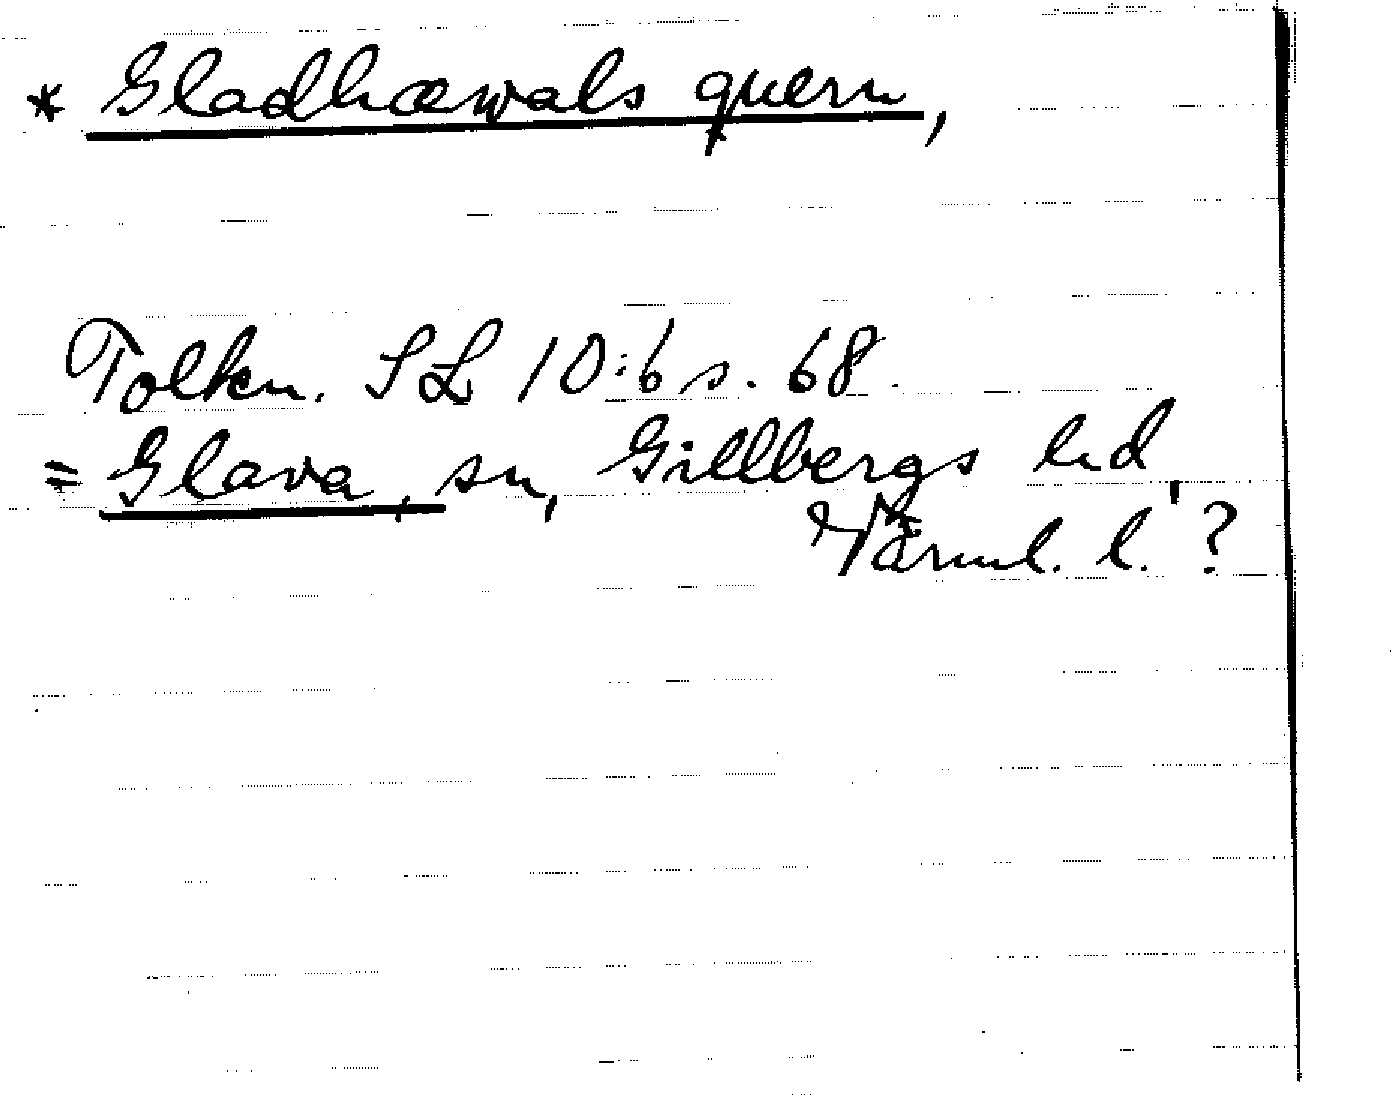 * Gladhæwals quern,
Tolkn. SL 10:6 s. 68.
= Glava, sn, Gillbergs hd,
Värml. l. ?